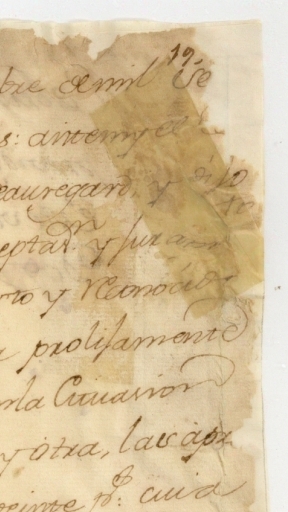 19
bre de mil Se
s: antemy el
eauregard, y dijo
eptaⁿ. y Juram
rto y Reconocio
a prolijamente
nla Cituasion
y otra, las apr
veinte pˢ: cuia